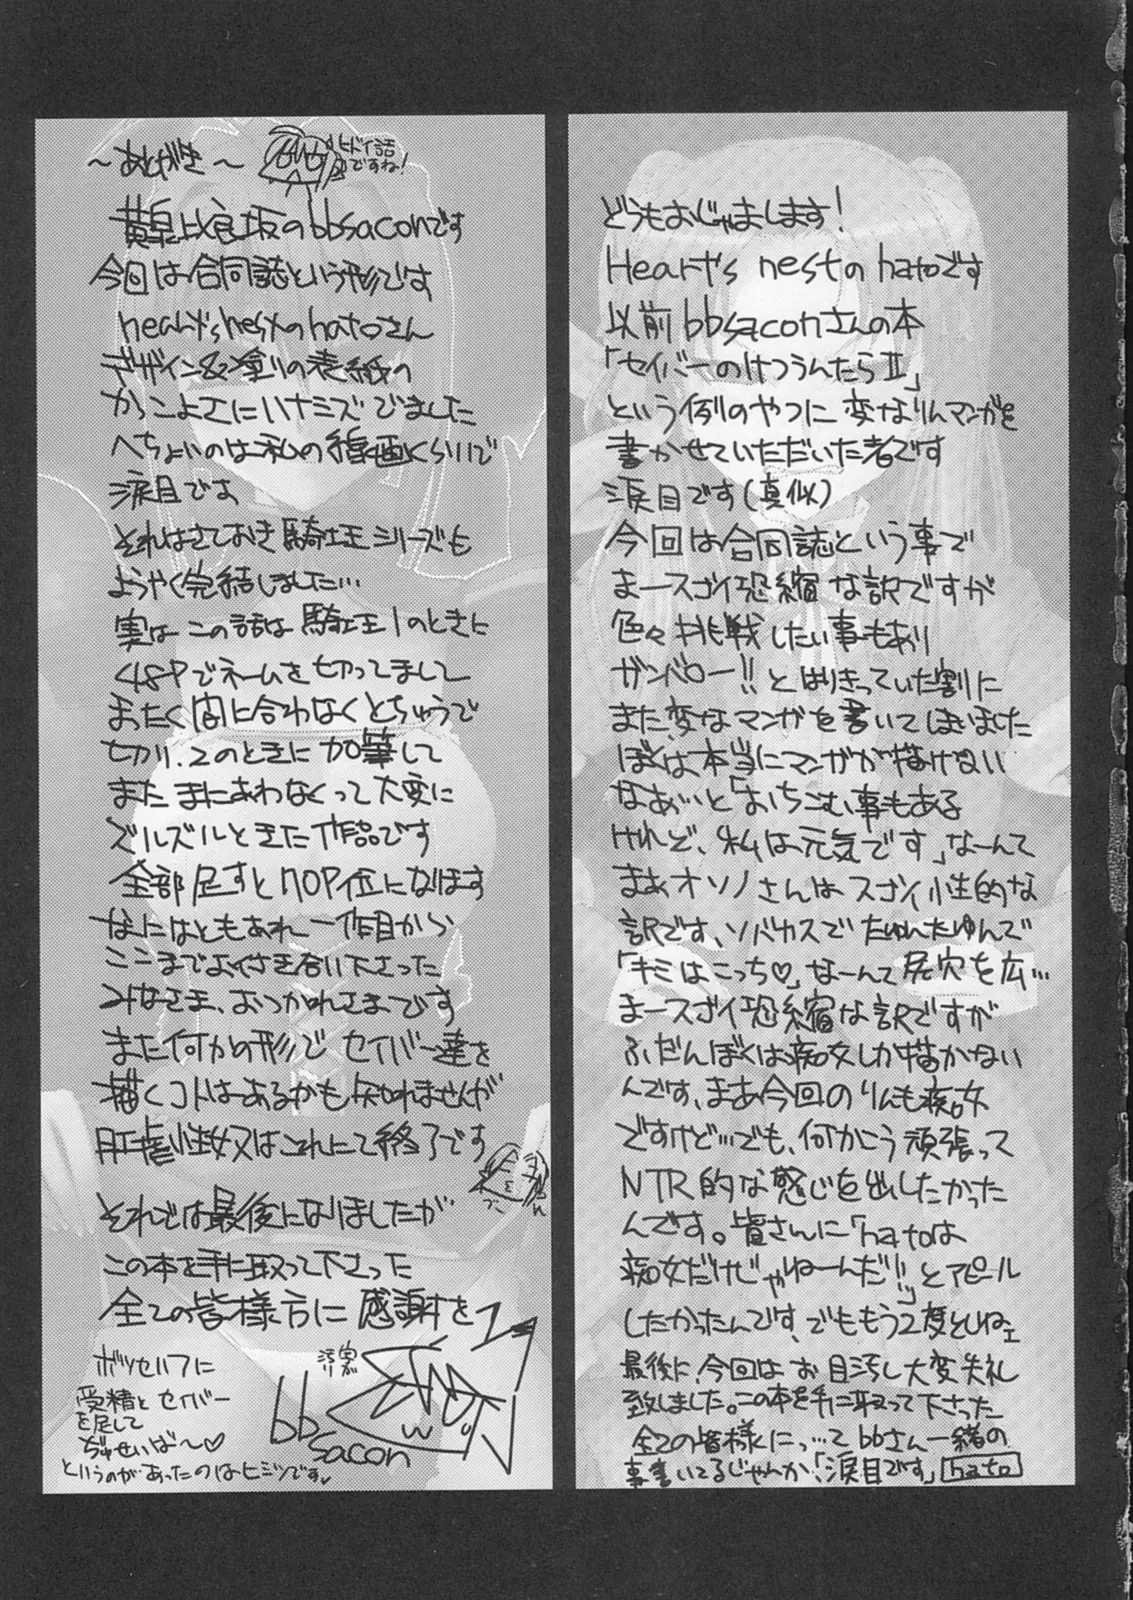 ～あとがき～
ヒドイ話
ですね!
黄泉比良坂のbbsaconです
今回は合同誌という形です
heart's nestのhatoさん
デザイン&塗りの表紙の
かっこよさにハナミズでました
へちょいのは私の線画くらいで
涙目です
それはさておき騎士王シリーズも
ようやく完結しました…
実はこの話は騎士王1のときに
48Pでネームを切ってまして
まったく間に合わなくとちゅうで
切り、2のときに加筆して
またまにあわなくって大変に
ズルズルときた作品です
全部足すと70P位になります
なにはともあれ一作目から
ここまでよくつき合い下さった
みなさま、おつかれさまです
また何かの形でセイバー達を
描くコトはあるかも知れませんが
肛虐性奴又はこれにて終了です
それでは最後になりましたが
この本を手に取って下さった
全ての皆様方に感謝を
ボツセリフに
受精とセイバー
を足して
ぢゅせいば～♡
というのがあったのはヒミツです
bb
sacon
どうもおじゃまします!
Heart's nestのhatoです
以前bbsaconさんの本
「セイバーのけつうんたらII」
という例のやつに変なりんマンガを
書かせていただいた者です
涙目です(真似)
今回は合同誌という事で
まースゴイ恐縮な訳ですが
色々挑戦したい事もあり
ガンバロー!!とはりきっていた割に
また変なマンガを書いてしまいました
ぼくは本当にマンガが描けない
なあ…と「おちこむ事もある
けれど、私は元気です」なーんて
まあオソノさんはスゴイ性的な
訳です、ソバカスでたゆんたゆんで
「キミはこっち♡」なーんて尻穴を広…
まースゴイ恐縮な訳ですが
ふだんぼくは痴女しか描かない
んです、まあ今回のりんも痴女
ですけど…でも、何かこう頑張って
NTR的な感じを出したかった
んです。皆さんに「hatoは
痴女だけじゃねーんだ!!」とアピール
したかったんです、でももう2度としねェ
最後に、今回はお目汚し大変失礼
致しました。この本を手に取って下さった
全ての皆様に…ってbbさん一緒の
事書いてるじゃんか、「涙目です」hato